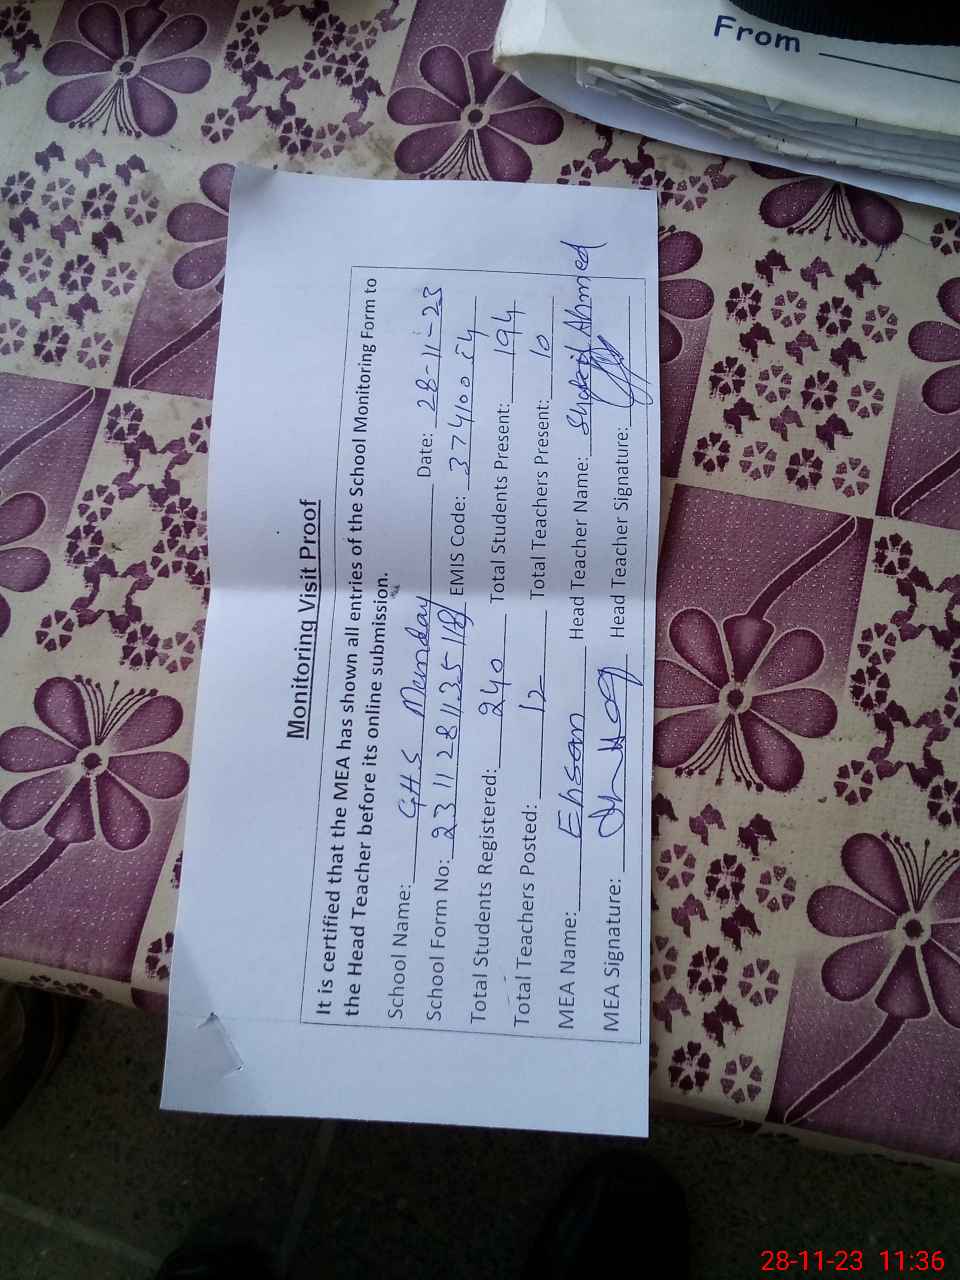 From
Monitoring Visit Proof
It is certified that the MEA has shown all entries of the School Monitoring Form to
the Head Teacher before its online submission.
School Name: GHS Munday Date: 28-11-23
School Form No: 23112811351 EMIS Code: 374100
Total Students Registered: 240 Total Students Present: 194
Total Teachers Posted: 12 Total Teachers Present: 10
MEA Name: Ehsan Head Teacher Name: Ahmed
MEA Signature: Head Teacher Signature:
28-11-23 11:36